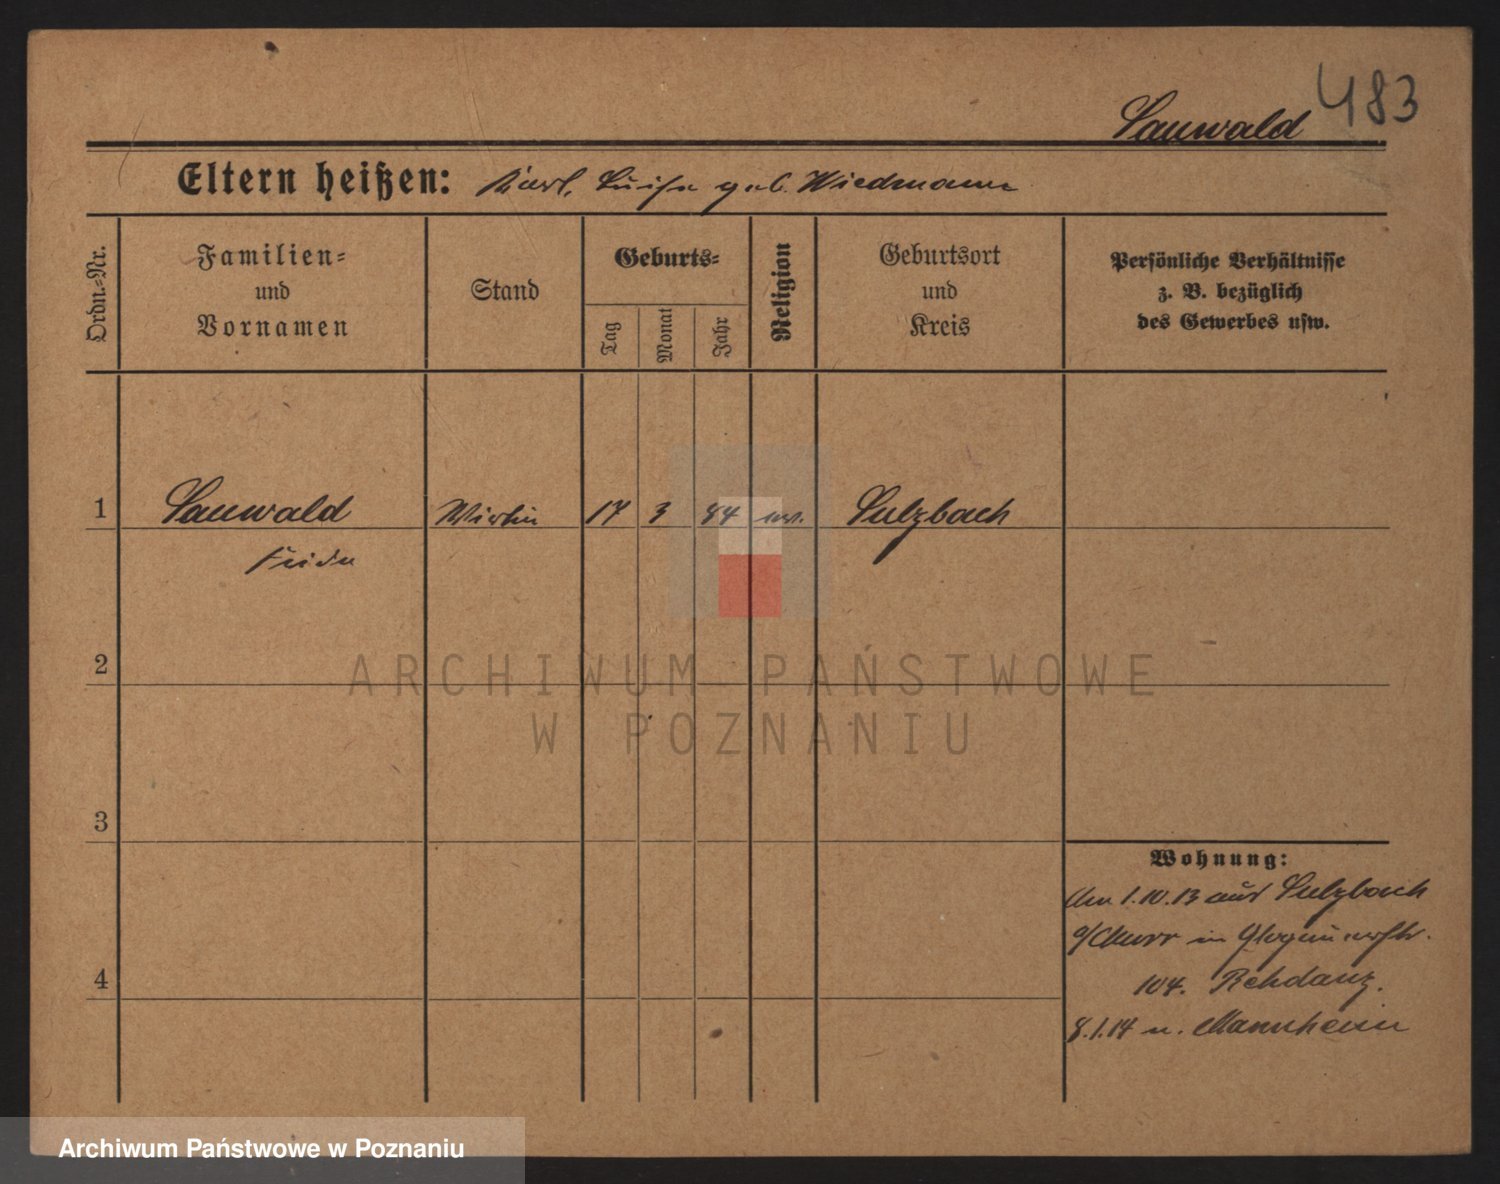 483
Sauwald
Eltern heißen: Karl, Luise geb. Wiedmann
Ordn.-Nr.
Familien-
und
Vornamen
Stand
Geburts-
Tag
Monat
Jahr
Religion
Geburtsort
und
Kreis
Persönliche Verhältnisse
z. B. bezüglich
des Gewerbes usw.
1 Sauwald 17 3 84 ev. Sulzbach
Frida
2
ARCHIWUM PAŃSTWOWE
W POZNANIU
3
Wohnung:
den 1.10.13 aus Sulzbach
a/Murr in Glogauerstr.
104. Rehdanz.
4
8.1.14 n. Mannheim
Archiwum Państwowe w Poznaniu